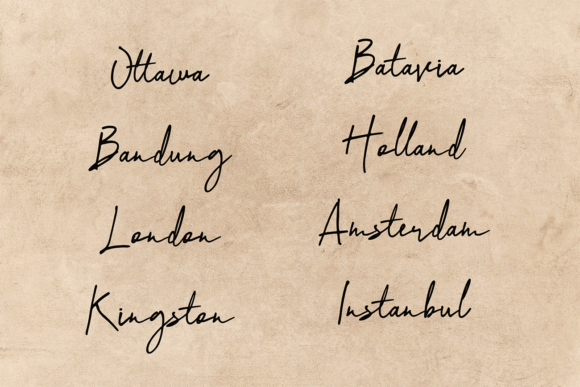 Ottawa
Bandung
London
Kingston
Batavia
Holland
Amsterdam
Instanbul